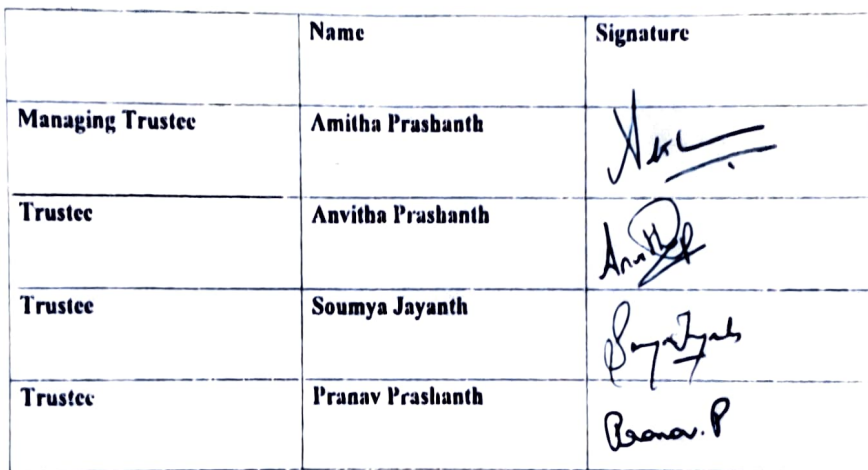 Name Signature
Managing Trustee Amitha Prashanth
Trustee Anvitha Prashanth
Trustee Soumya Jayanth
Trustee Pranav Prashanth
Pranav. P